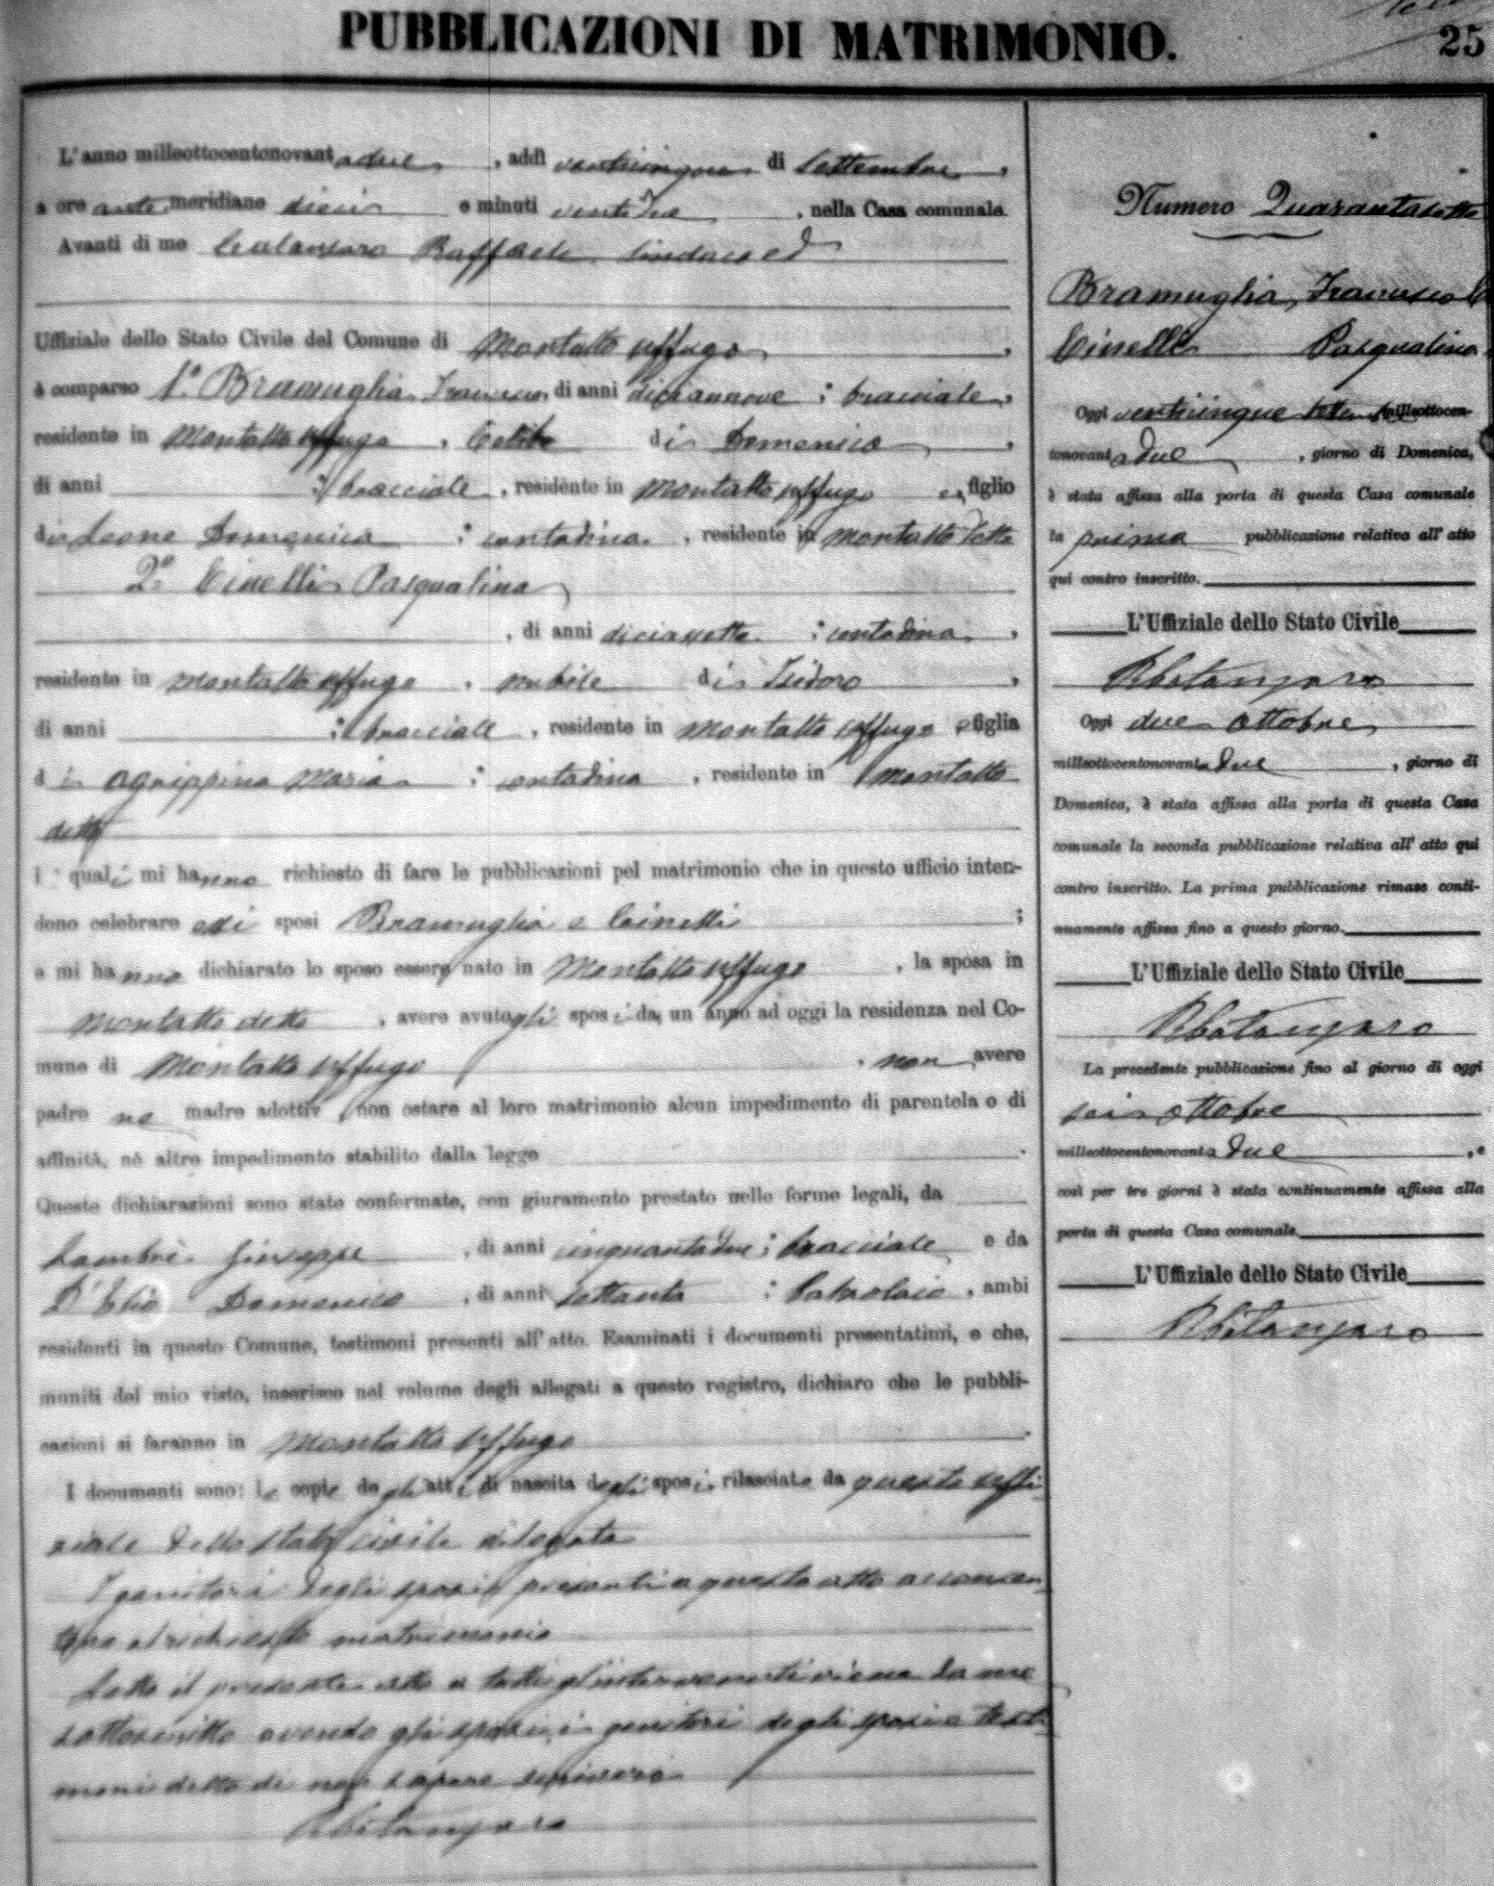 PUBBLICAZIONI DI MATRIMONIO.
25
L'anno milleottocentonovantadue, addì venticinque di Settembre,
a ore antemeridiane dieci e minuti ventidue, nella Casa comunale.
Avanti di me Catanzaro Raffaele Sindaco ed
Uffiziale dello Stato Civile del Comune di Montalto Uffugo,
è comparso 1.º Bramuglia Francesco, di anni diciannove; bracciale,
residente in Montalto Uffugo, Celibe di Domenico,
di anni ; bracciale, residente in Montalto Uffugo e figlio
di Leone Domenica ; contadina, residente in Montalto detto
2.º Cinelli Pasqualina
, di anni diciassette ; contadina,
residente in Montalto Uffugo, nubile di Isidoro,
di anni ; bracciale, residente in Montalto Uffugo e figlia
di Agrippina Maria ; contadina, residente in Montalto
detto
i quali mi hanno richiesto di fare le pubblicazioni pel matrimonio che in questo ufficio inten-
dono celebrare essi sposi Bramuglia e Cinelli ;
e mi hanno dichiarato lo sposo essere nato in Montalto Uffugo, la sposa in
Montalto detto, avere avuto gli sposi da un anno ad oggi la residenza nel Co-
mune di Montalto Uffugo, non avere
padre ne madre adottiv non ostare al loro matrimonio alcun impedimento di parentela o di
affinità, nè altro impedimento stabilito dalla legge.
Queste dichiarazioni sono state confermate, con giuramento prestato nelle forme legali, da
Giuseppe, di anni cinquantadue; bracciale e da
D'Elia Domenico, di anni settanta ; Calzolaio, ambi
residenti in questo Comune, testimoni presenti all'atto. Esaminati i documenti presentatimi, e che,
muniti del mio visto, inserisco nel volume degli allegati a questo registro, dichiaro che le pubbli-
cazioni si faranno in Montalto Uffugo.
I documenti sono: le copie degli atti di nascita degli sposi, rilasciate da questo uffi-
ziale dello stato civile
I genitori degli sposi presenti a questo atto acconsen-
tono al richiesto matrimonio
Letto il presente atto a tutti gl'intervenuti viene da me
sottoscritto avendo gli sposi, i genitori degli sposi e testi-
moni detto di non sapere scrivere
RCatanzaro
Numero Quarantasette
Bramuglia Francesco e
Cinelli Pasqualina
Oggi venticinque Settembre milleottocen-
tonovantadue, giorno di Domenica,
è stata affissa alla porta di questa Casa comunale
la prima pubblicazione relativa all'atto
qui contro inscritto.
L'Uffiziale dello Stato Civile
RCatanzaro
Oggi due Ottobre
milleottocentonovantadue, giorno di
Domenica, è stata affissa alla porta di questa Casa
comunale la seconda pubblicazione relativa all'atto qui
contro inscritto. La prima pubblicazione rimase conti-
nuamente affissa fino a questo giorno.
L'Uffiziale dello Stato Civile
RCatanzaro
La precedente pubblicazione fino al giorno di oggi
sei Ottobre
milleottocentonovantadue, e
così per tre giorni è stata continuamente affissa alla
porta di questa Casa comunale.
L'Uffiziale dello Stato Civile
RCatanzaro